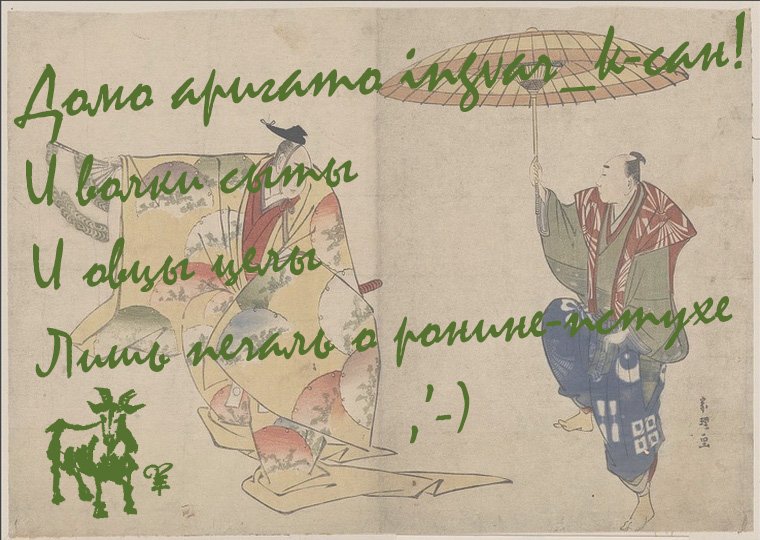 Домо аригато ingvar_k-сан!
И волки сыты
И овцы целы
Лишь печаль о ронине-пстухе
,'-)
羊